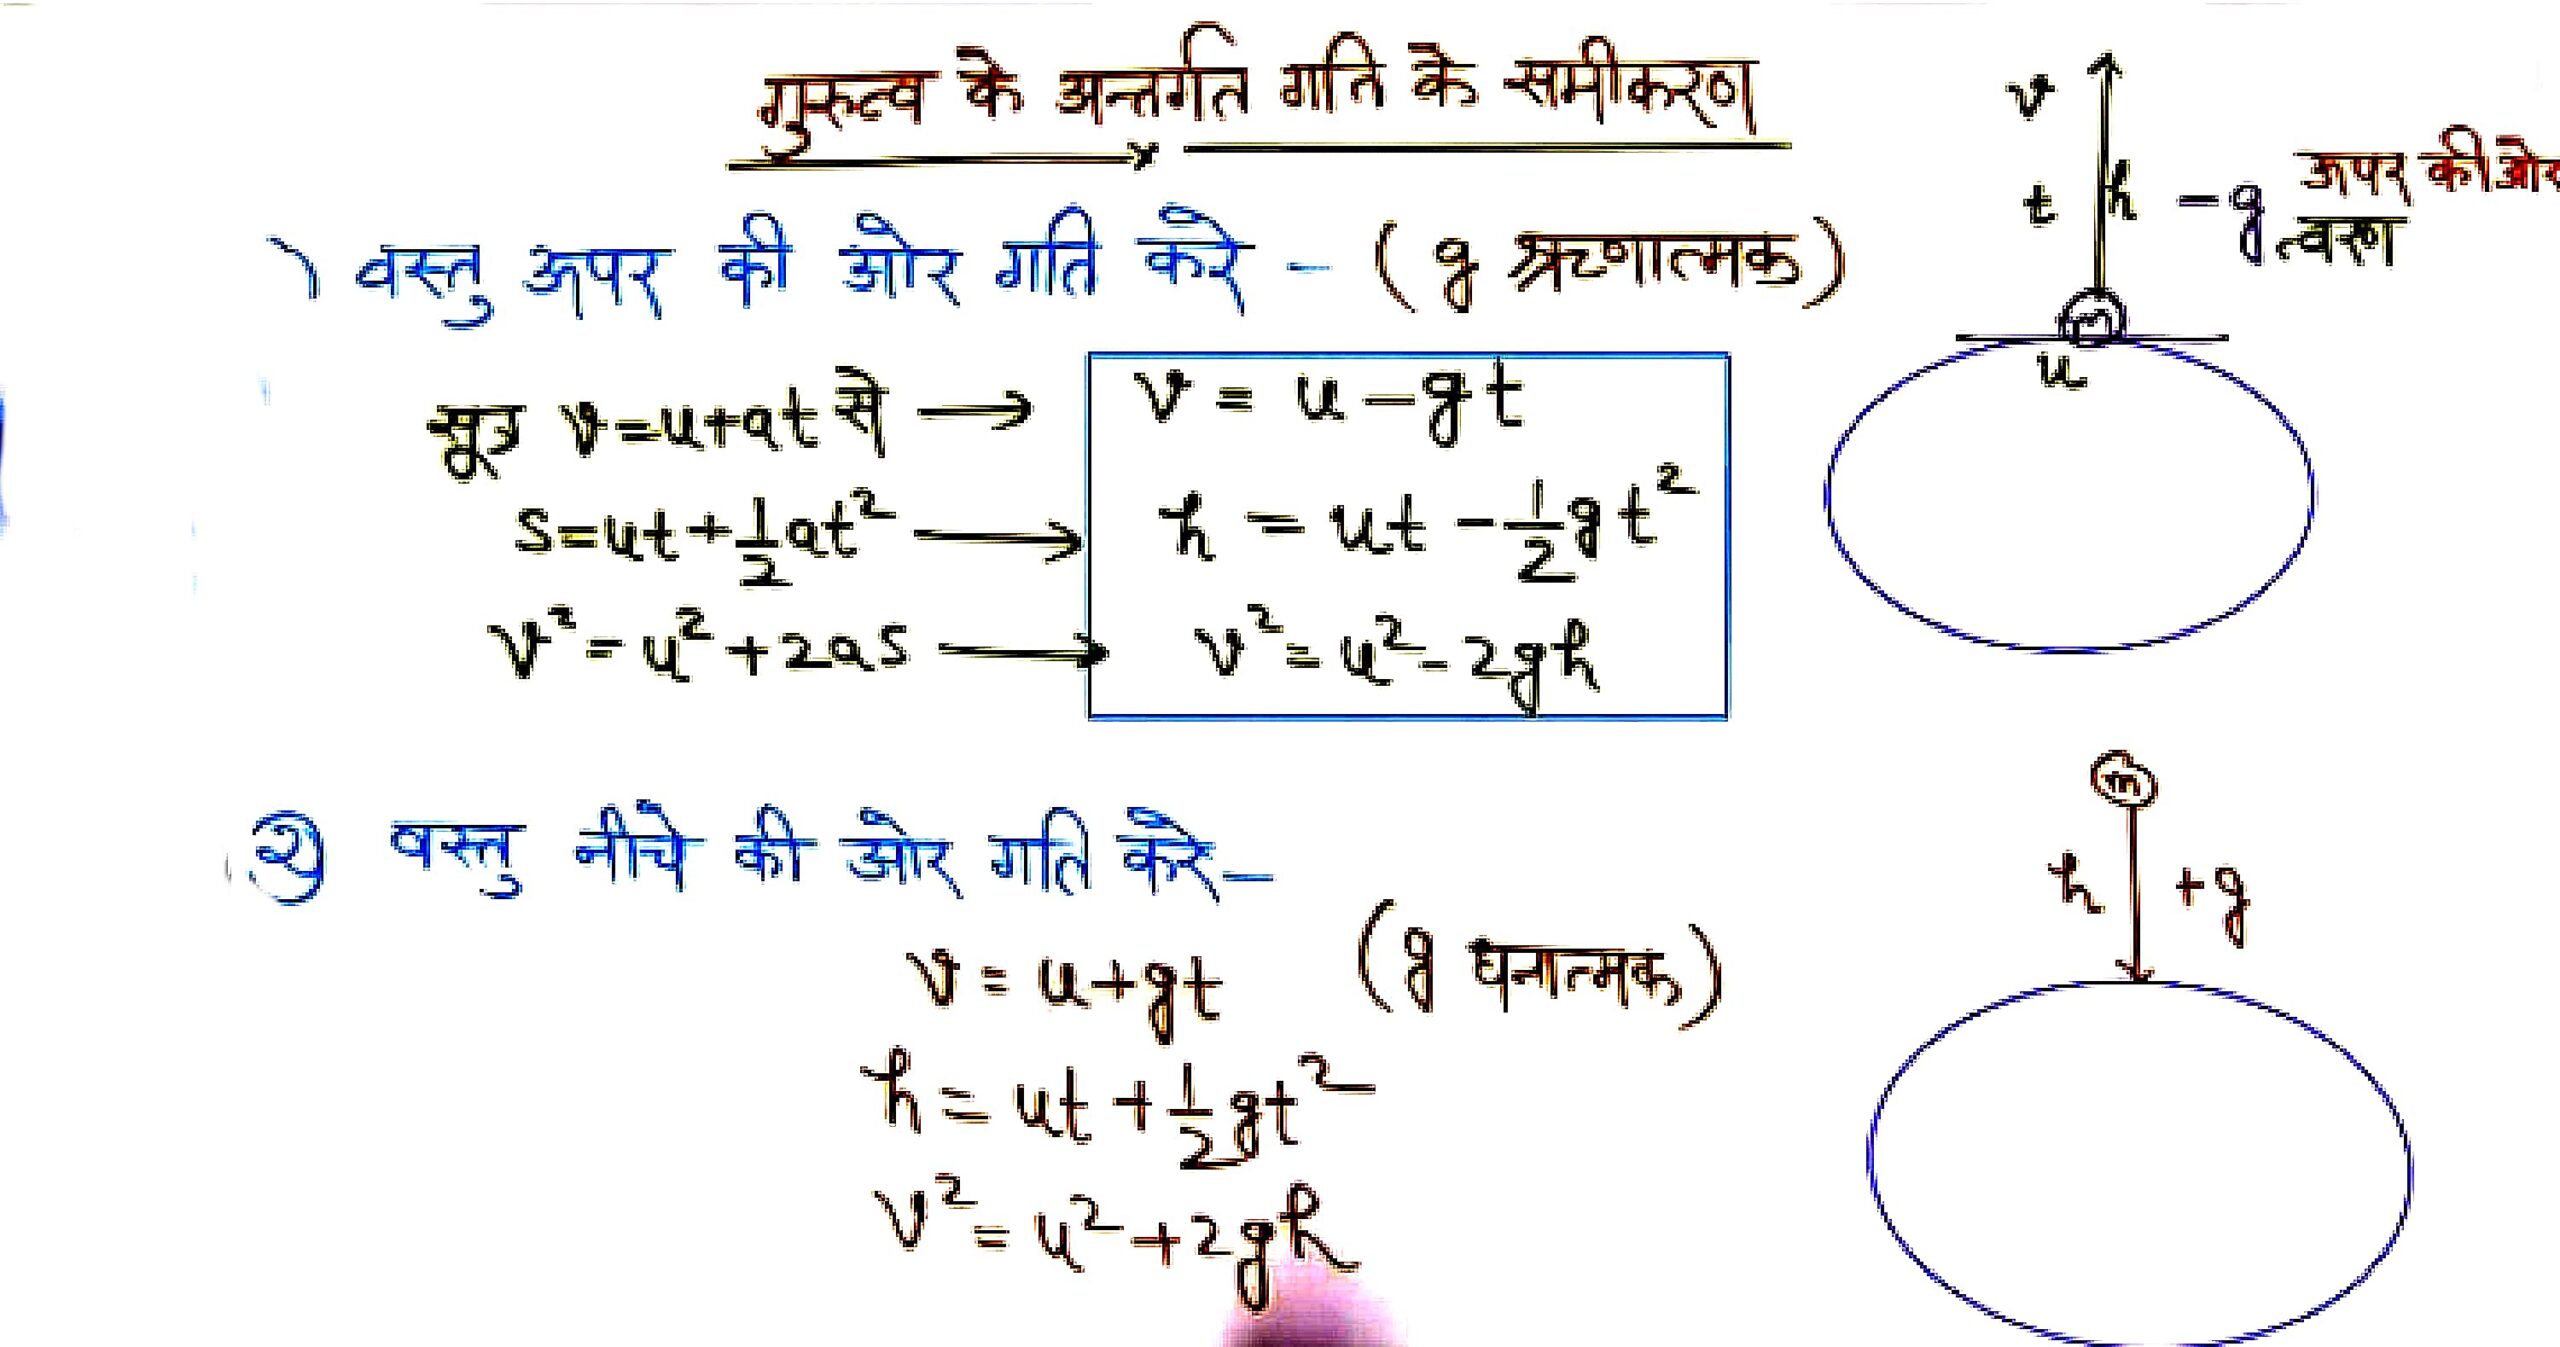 गुरुत्व के अन्तर्गत गति के समीकरण
) वस्तु ऊपर की ओर गति करे - ( g ऋणात्मक )
सूत्र v=u+at से → v = u - gt
s=ut+½at² → h = ut - ½gt²
v² = u² + 2as → v² = u² - 2gh
v
t h - g ऊपर की ओर
त्वरण
m
u
② वस्तु नीचे की ओर गति करे -
( g धनात्मक )
v = u+gt
h = ut + ½gt²
v² = u² + 2gh
m
h +g